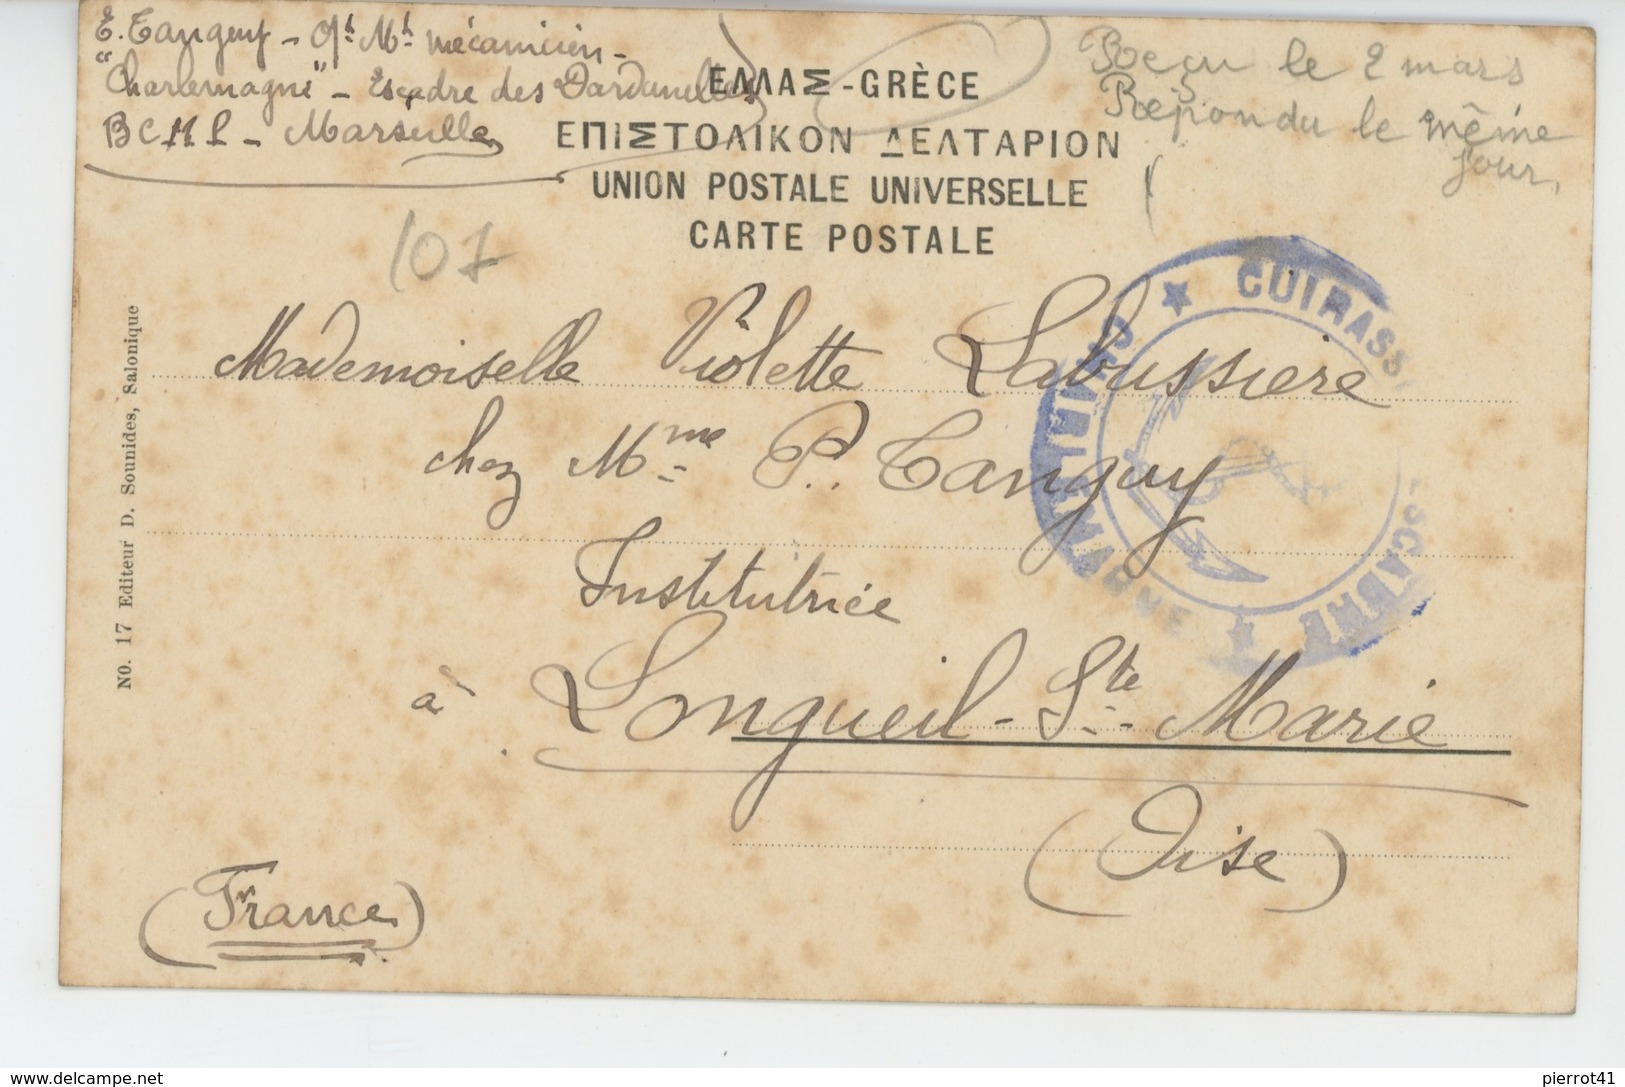 E. Tanguy - Qr. Mt. mécanicien -
"Charlemagne" - Escadre des Dardanelles
B C M P - Marseille
Reçu le 2 mars
Répondu le même
jour.
ΕΛΛΑΣ - GRÈCE
ΕΠΙΣΤΟΛΙΚΟΝ ΔΕΛΤΑΡΙΟΝ
UNION POSTALE UNIVERSELLE
CARTE POSTALE
107
CUIRASS ESCADRE
CHARLEMAGNE
Mademoiselle Violette Labussière
chez Mme P. Tanguy
Institutrice
à Longueil-Ste-Marie
(Oise)
(France)
NO. 17 Editeur D. Sounides, Salonique
www.delcampe.net
pierrot41